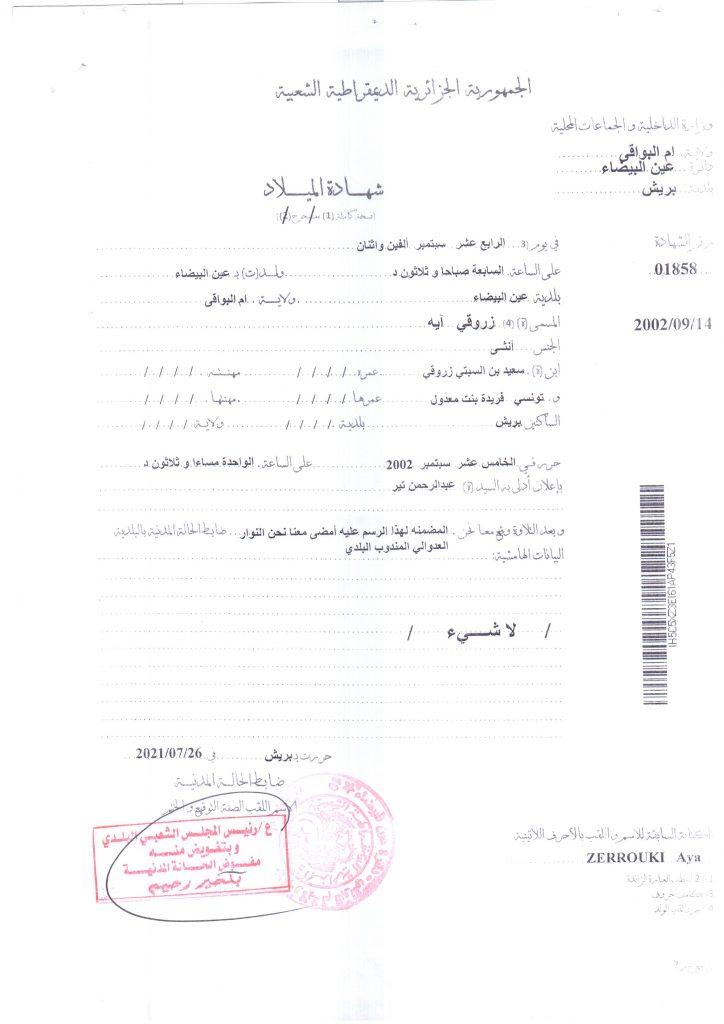 الجمهورية الجزائرية الديمقراطية الشعبية
وزارة الداخلية و الجماعات المحلية
ولاية. ام البواقي
دائرة. عين البيضاء
بلدية بريش
شهادة الميلاد
(نسخة كاملة (1)
رقم الشهادة
01858
2002/09/14
في يوم (3 الرابع عشر سبتمبر ألفين واثنان
على الساعة. السابعة صباحا و ثلاثون د ولد(ت) بـ عين البيضاء
بلدية عين البيضاء ولاية ام البواقي
المسمى (ة) (4) زروقي آيه
الجنس أنثى
ابن (ة) سعيد بن السبتي زروقي عمره / / / / مهنته / / / /
و. تونسي فريدة بنت معدول عمرها / / / / مهنتها / / / /
الساكنين بريش بلدية / / / / ولاية / / / /
حرر في الخامس عشر سبتمبر 2002 على الساعة. الواحدة مساءا و ثلاثون د
بإعلان أدلى به السيد (ة) عبدالرحمن تير
و بعد التلاوة وقع معنا نحن . المضمنه لهذا الرسم عليه أمضى معنا نحن النوار ضابط الحالة المدنية بالبلدية
العدوالي المندوب البلدي
البيانات الهامشية:
/ لا شيء /
IH5C5XZ3EI61AP43F5Z1
حررت بـ بريش في 2021/07/26
ضابط الحالة المدنية
الاسم اللقب الصفة التوقيع و الختم
ع/رئيس المجلس الشعبي البلدي
و بتفويض منه
مفوض الحالة المدنية
بلخير رحيم
الكتابة السابقة للاسم و اللقب بالأحرف اللاتينية
ZERROUKI Aya